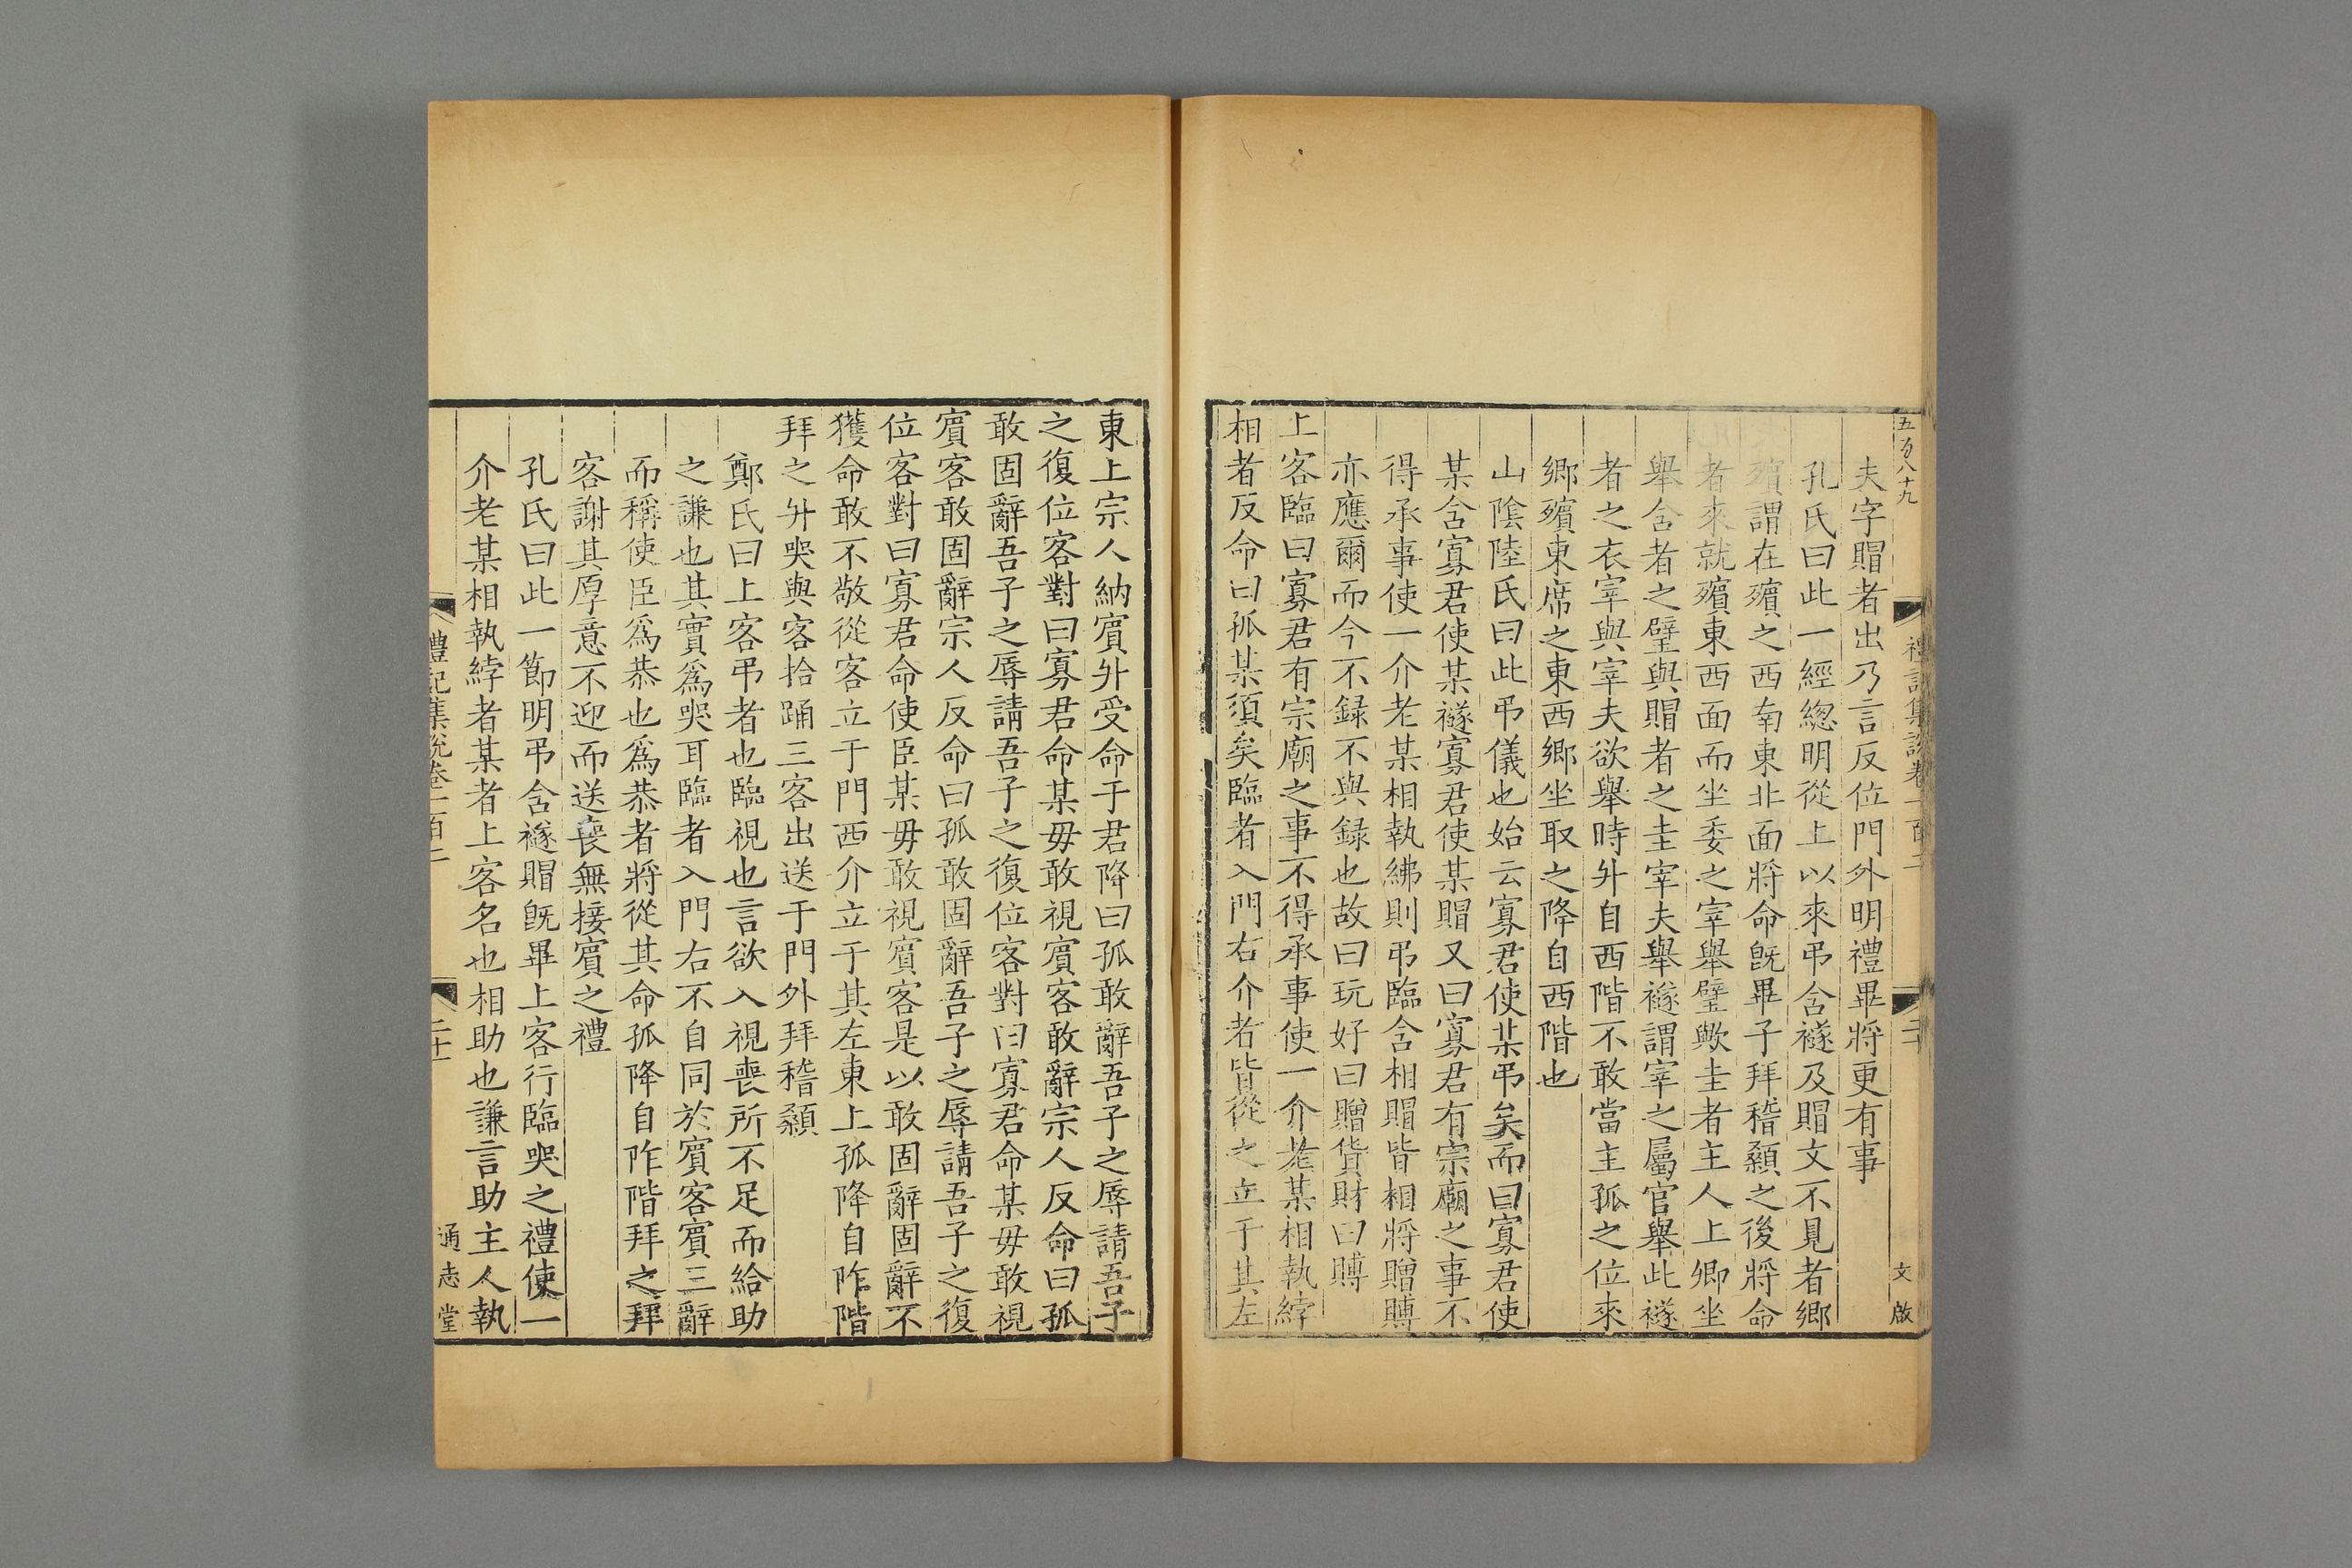 五百八十九
禮記集說卷一百二
二十
文啟
夫字賵者出乃言反位門外明禮畢將更有事
孔氏曰此一經緫明從上以來弔含襚及賵文不見者鄉
殯謂在殯之西南東北面將命旣畢子拜稽顙之後將命
者來就殯東西面而坐委之宰舉璧歟圭者主人上卿坐
舉含者之璧與賵者之圭宰夫舉襚謂宰之屬官舉此襚
者之衣宰與宰夫欲舉時升自西階不敢當主孤之位來
鄉殯東席之東西鄉坐取之降自西階也
山陰陸氏曰此弔儀也始云寡君使某弔矣而曰寡君使
某含寡君使某襚寡君使某賵又曰寡君有宗廟之事不
得承事使一介老某相執紼則弔臨含相賵皆相將贈賻
亦應爾而今不録不與録也故曰玩好曰贈貨財曰賻
上客臨曰寡君有宗廟之事不得承事使一介老某相執綍
相者反命曰孤某須矣臨者入門右介者皆從之立于其左
東上宗人納賓升受命于君降曰孤敢辭吾子之辱請吾子
之復位客對曰寡君命某毋敢視賓客敢辭宗人反命曰孤
敢固辭吾子之辱請吾子之復位客對曰寡君命某毋敢視
賓客敢固辭宗人反命曰孤敢固辭吾子之辱請吾子之復
位客對曰寡君命使臣某毋敢視賓客是以敢固辭固辭不
獲命敢不敬從客立于門西介立于其左東上孤降自阼階
拜之升哭與客拾踊三客出送于門外拜稽顙
鄭氏曰上客弔者也臨視也言欲入視喪所不足而給助
之謙也其實爲哭耳臨者入門右不自同於賓客賓三辭
而稱使臣爲恭也爲恭者將從其命孤降自阼階拜之拜
客謝其厚意不迎而送喪無接賓之禮
孔氏曰此一節明弔含襚賵旣畢上客行臨哭之禮使一
介老某相執綍者某者上客名也相助也謙言助主人執
禮記集說卷一百二
二十一
通志堂